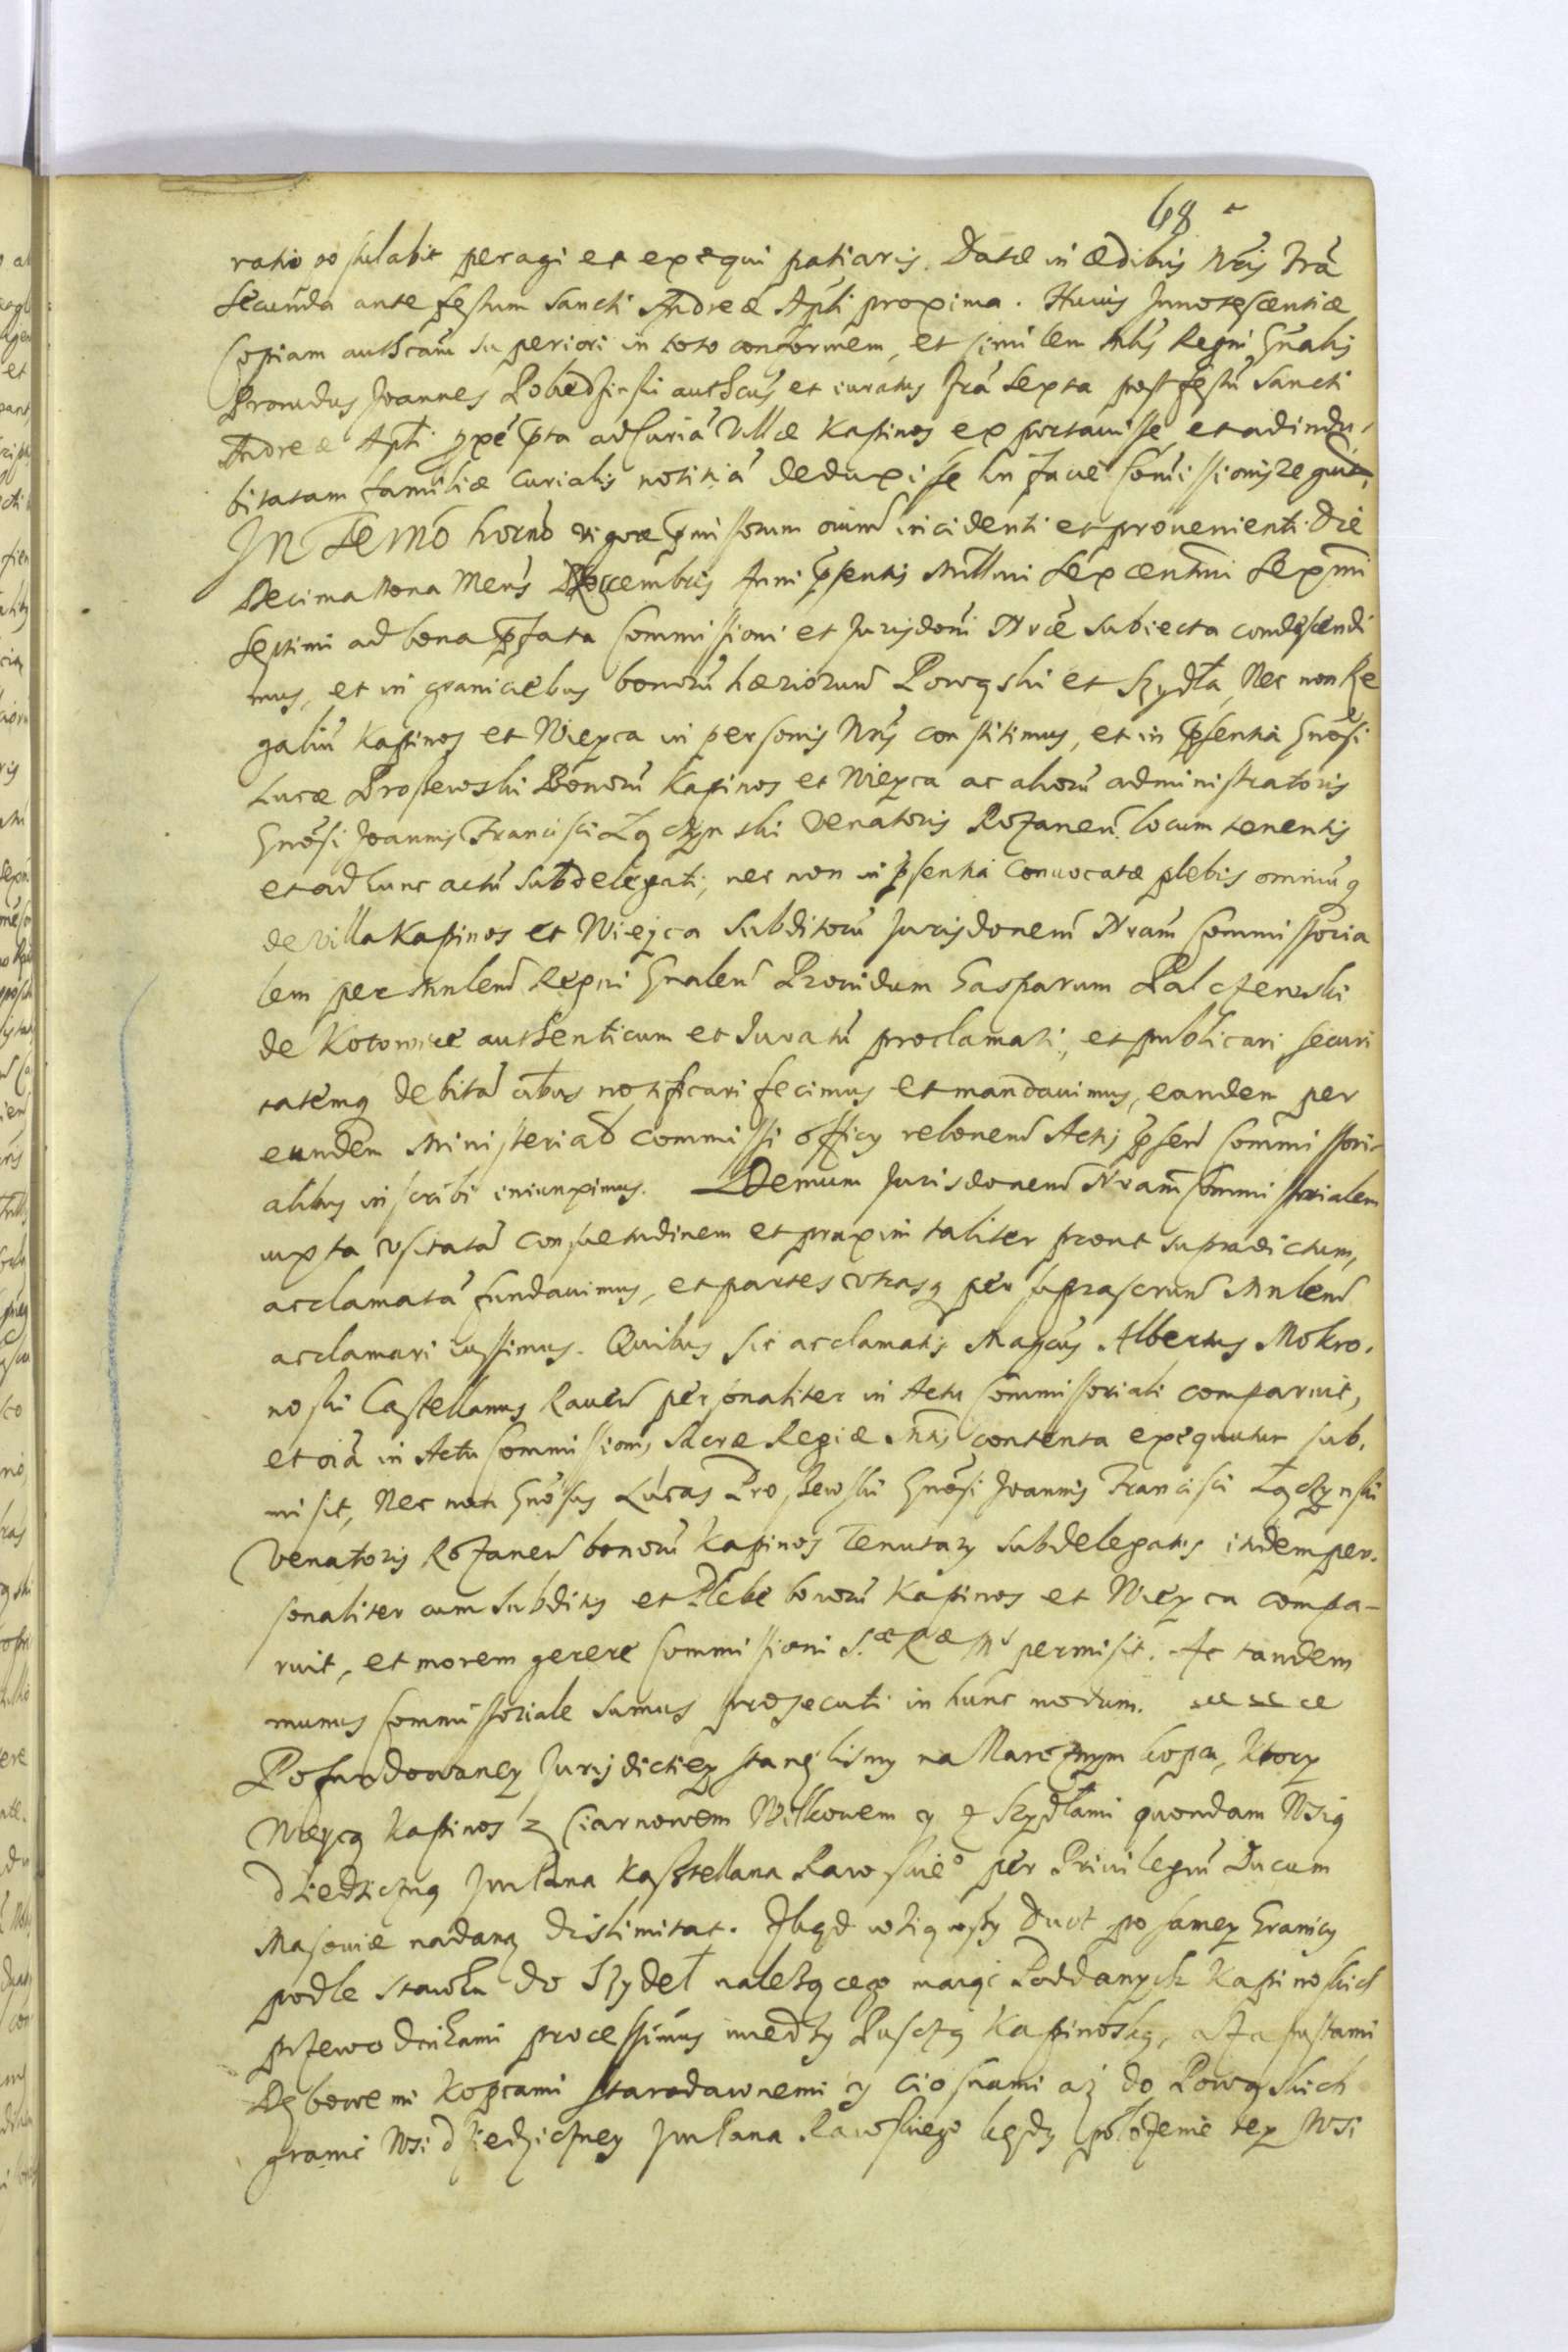 68
ratio postulabit peragi et exequi patiaris. Datæ in ædibus Nris fria
Secunda ante festum Sancti Andreæ Apli proxima. Huius Innotescentiæ
Copiam authcam superiori in toto conformem, et similem Mlis Regni Gnalis
Providus Joannes authcus et iuratus fria Sexta post festu Sancti
Andreæ Apli pxe adCuria Villæ Kapinos exportavisse, et ad indu-
bitatam familiæ curialis notitia deduxisse
In Termo horno vigore pmissorum oium incidenti et provenienti die
Decima Nona Mens Decembris Anni psentis Millmi Sexcentmi Sexmi
Septimi ad bona pfata Commissioni et Jurisdoni Nræ subiecta condescendi
mus, et in graniciebus bonoru hæriorum Powąski et Szydła, Nec non Re
galiu Kapinos et Wieyca in personis Nris constitimus, et in psentia Gnosi
Lucæ Prosewski Bonoru Kapinos et Wieyca ac alioru administratoris
Gnosi Joannis Francisci Łączynski Venatoris Rozanen. locum tenentis
et ad hunc actu Subdelegati, nec non in psentia convocatæ plebis omniuq
de villa Kapinos et Wieyca Subditoru Jurisdonem Nram Commissoria
lem per Mnlem Regni Gnalem Providum Gasparum Palczewski
de Kotowice authenticum et Juratu proclamati, et publicari securi
tatemq debita notificari fecimus et mandavimus, eandem per
eundem Ministeriale commissi officy relonem Actis psen Commissori-
alibus inscribi iniunximus. Demum Jurisdonem Nram Commissorialem
iuxta usitata consuetudinem et praxim taliter prout supradictum,
acclamata fundavimus, et partes utrasq per suprascrum Mnlem
acclamari iussimus. Quibus sic acclamatis Magcus Albertus Mokro-
noski Castellanus Raven personaliter in Actu Commissoriali comparuit,
et oia in Actu Commissionis Sacræ Regiæ Mtis contenta exequutur sub-
misit, Nec non Gnosus Lucas Prosewski Gnosi Joannis Francisci Łączynski
Venatoris Rozanen bonoru Kapinos Tenutary Subdelegatus itidem per-
sonaliter cum Subditis et Plebe bonoru Kapinos et Wieyca compa-
ruit, et morem gerere Commissioni S.æ R.æ M permisit. Ac tandem
munus Commissoriale sumus prosecuti in hunc modum.
Pofundowaney Jurisdictiey stanęlismy na Narożnym kopcu, ktory
Wieycą Kapinos z Ciarnowem Wilkowem y z Szydłami quondam Wsią
dziedziczną JmPana Kasztellana Rawskie° per Privilegiu Ducum
Masoviæ nadaną dislimitat. Zkąd wziąwszy duct po samey Granicy
podle stawku do Szydeł należącego maiąc Poddanych Kapinoskich
przewodnikami processimus miedzy Puszczą Kapinoską, a Zapustami
Dębowemi kopcami starodawnemi y ciosnami aż do Powąskich
granic Wsi dziedziczney JmPana Rawskiego kędy położenie tey Wsi